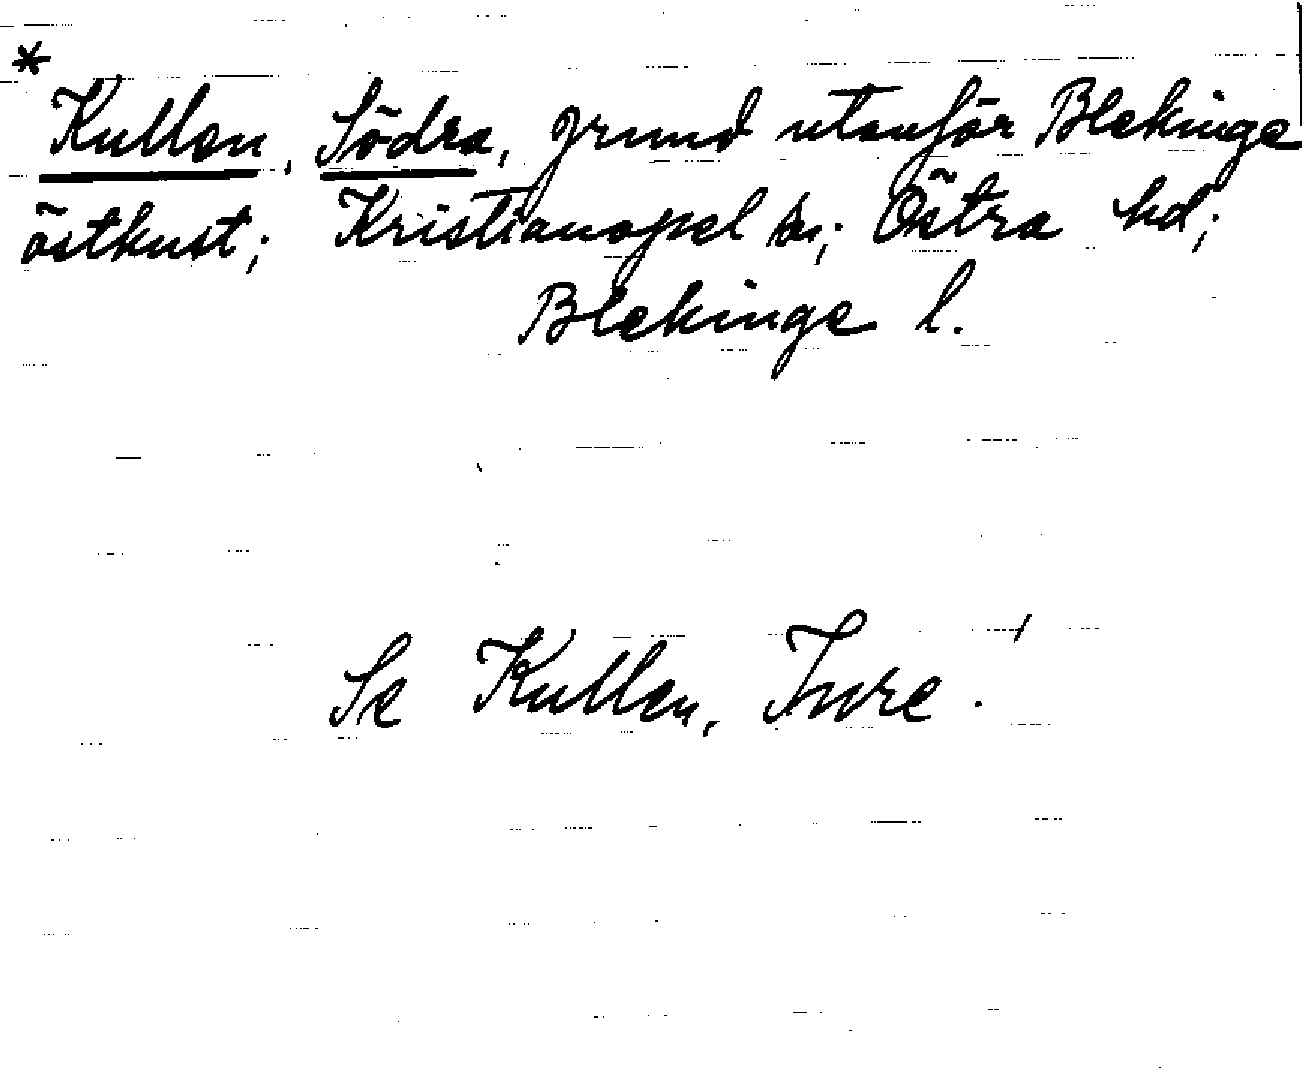 * Kullen, Södra, grund utanför Blekinge
östkust; Kristianopel sn; Östra hd;
Blekinge l.
Se Kullen, Inre.